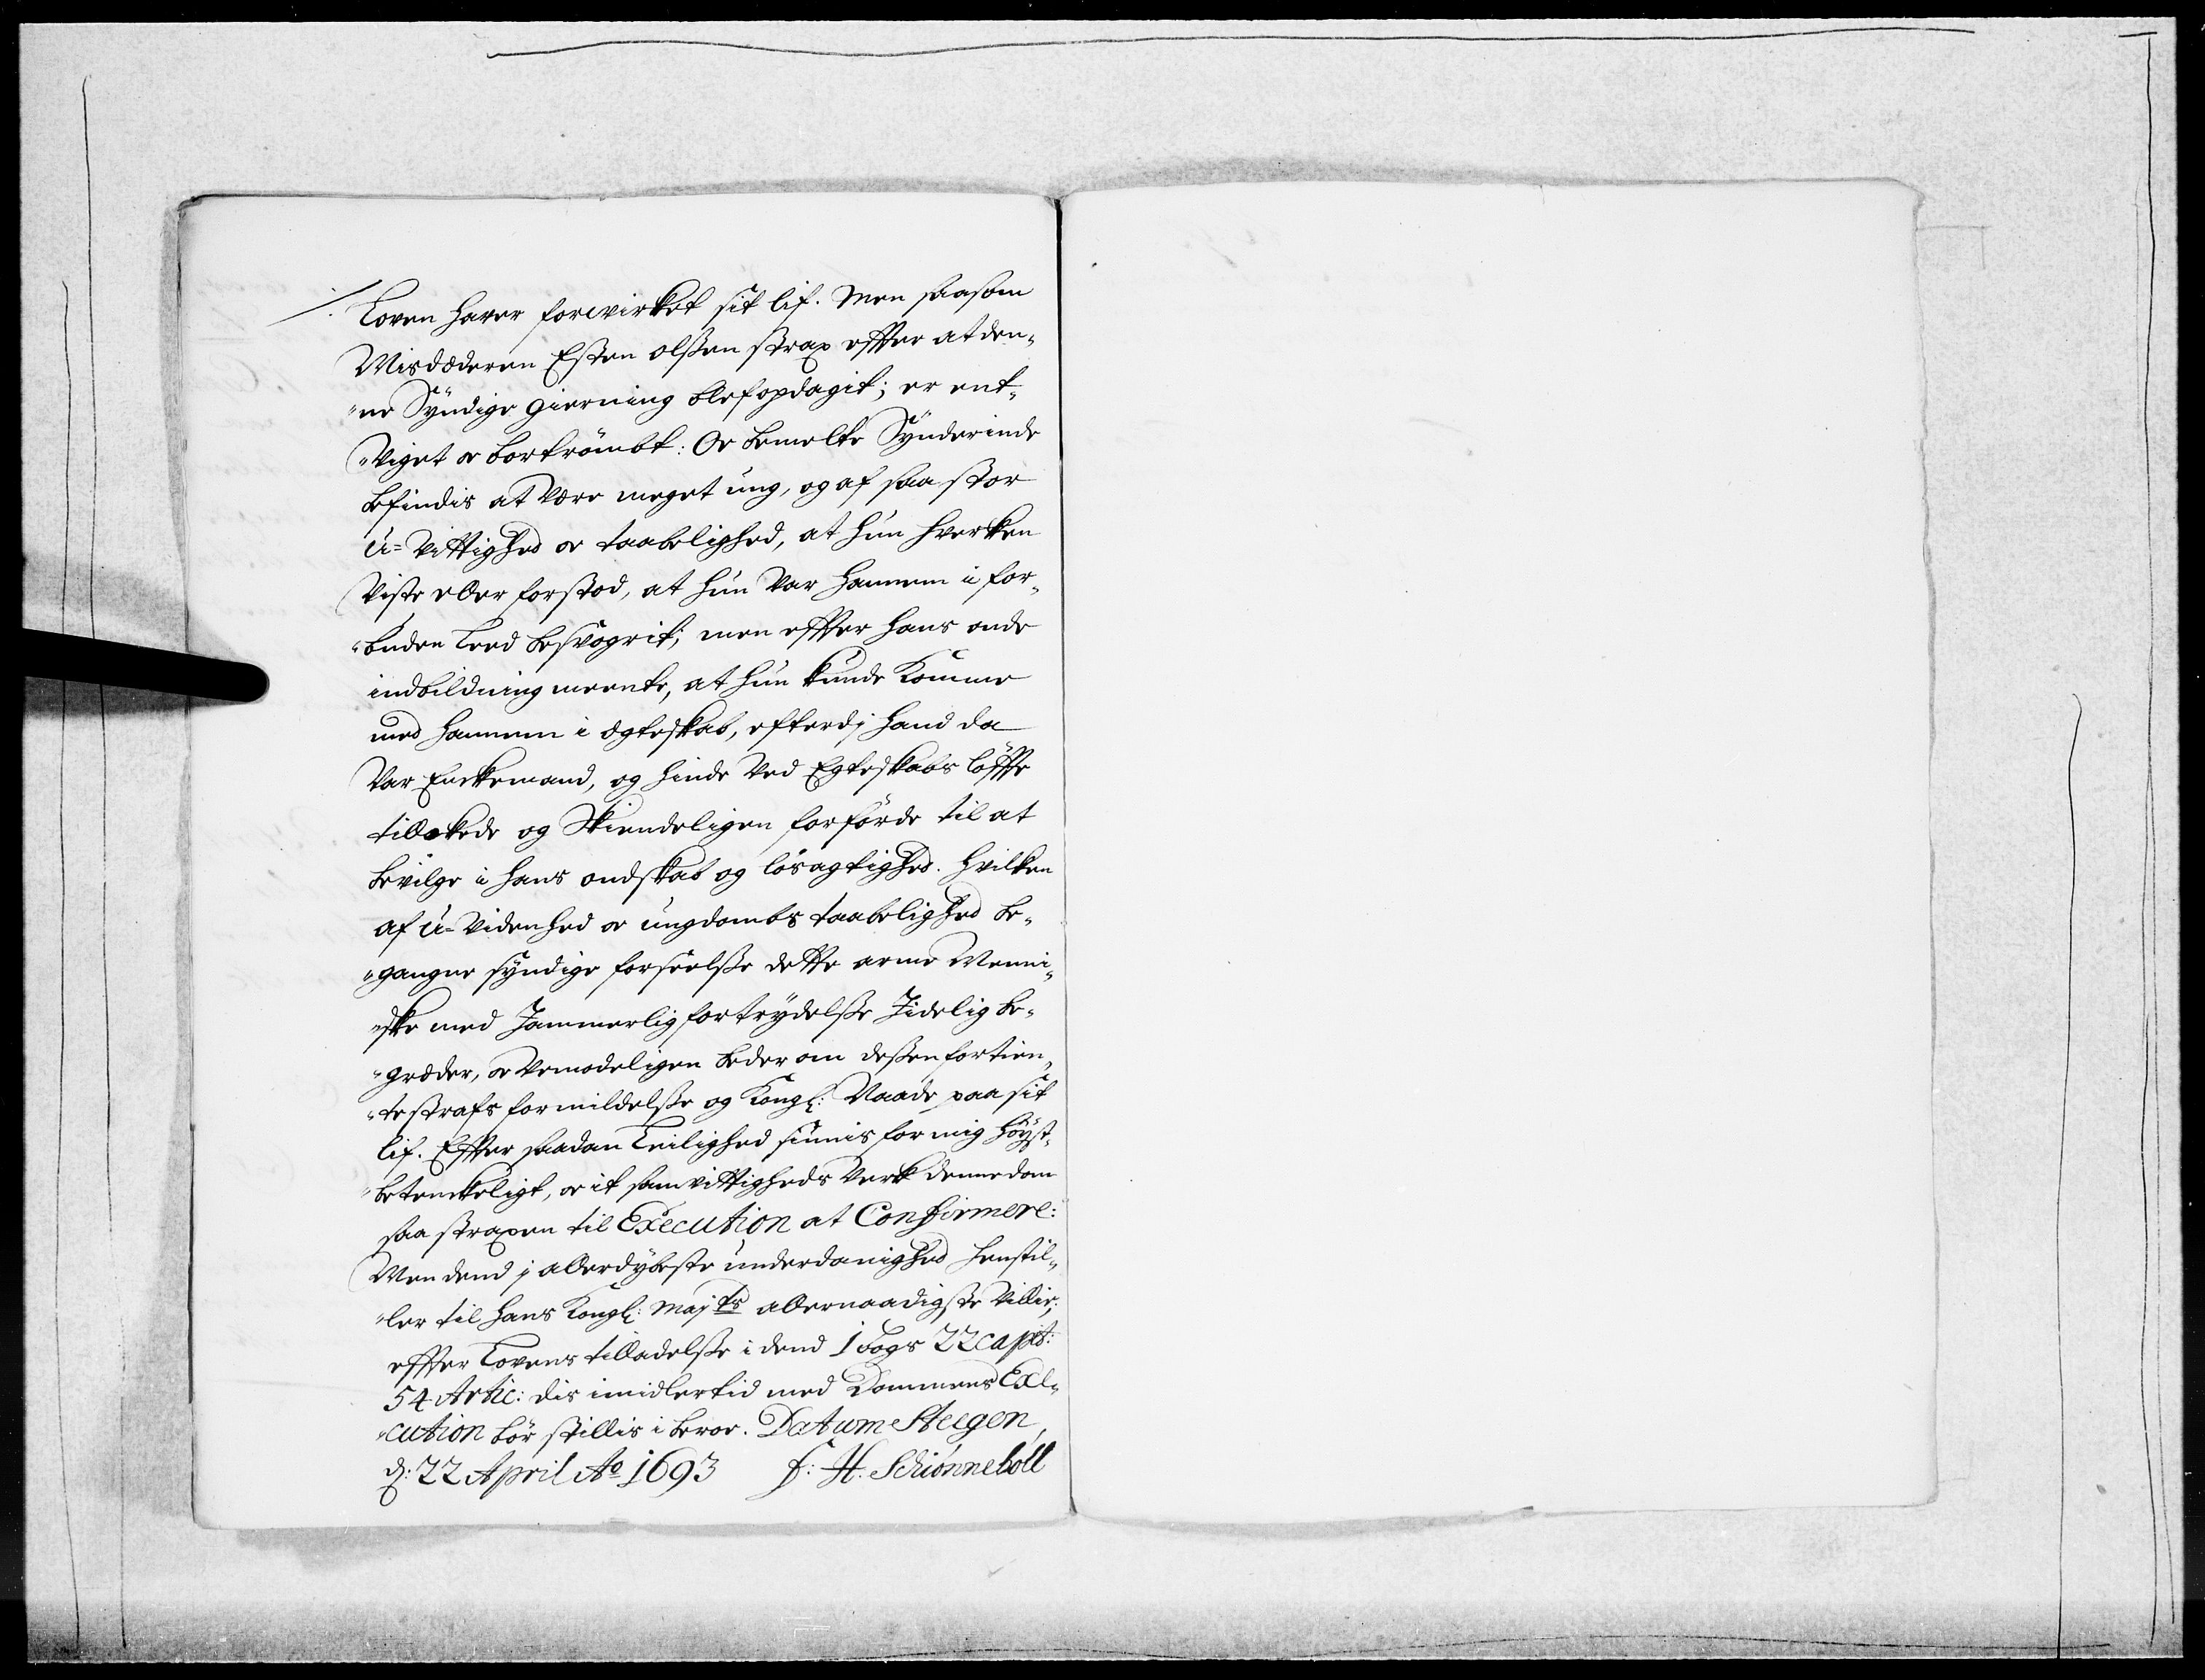 ./. Loven haver forwirket sit lif. Men saasom
Misdæderen Esten olßen strax effter at den-
"ne Syndige gierning blef opdagit; er ent-
"Viget oc bortrömbt: Oc bemelte Synderinde
befindis at være meget ung, og af saa stor
U=Vittighed oc taabelighed, at hun hverken
Viste eller forstod, at hun Var hannem i for-
"buden Leed besvogrit; men effter hans onde
indbildning meente, at hun kunde Komme
med hannem i ægteskab, efterdj hand da
Var Enckemand, og hinde Ved Egteskabs löffte
tillokede og Skiendeligen forförde til at
bevilge i hans ondskab og lösagtighed. Hvilken
af U=Videnhed oc ungdombs taabelighed be-
"gangne syndige forseelße dette arme Menni-
"ske med Jammerlig fortrydelße Jidelig be-
"græder, oc Vemodeligen beder om deßen fortien-
"te strafs formildelße og Kongl: Naade paa sit
lif. Effter saadan Leilighed siunis for mig höyst-
"betenckeligt, oc it samvittigheds Verk denne dom
saa straxen til Execution at Confirmere:
Men dend j allerdybeste underdanighed henstil-
"ler til hans Kongl: Majts allernaadigste Villie;
effter Lovens tilladelße i dend 1 bogs 22 capit:
54 Artic: dis imidlertid med Dommens Exe-
"cution bör stillis i beroe. Datum Steegen,
d: 22 April Ao 1693 f: H. Schiönneböll